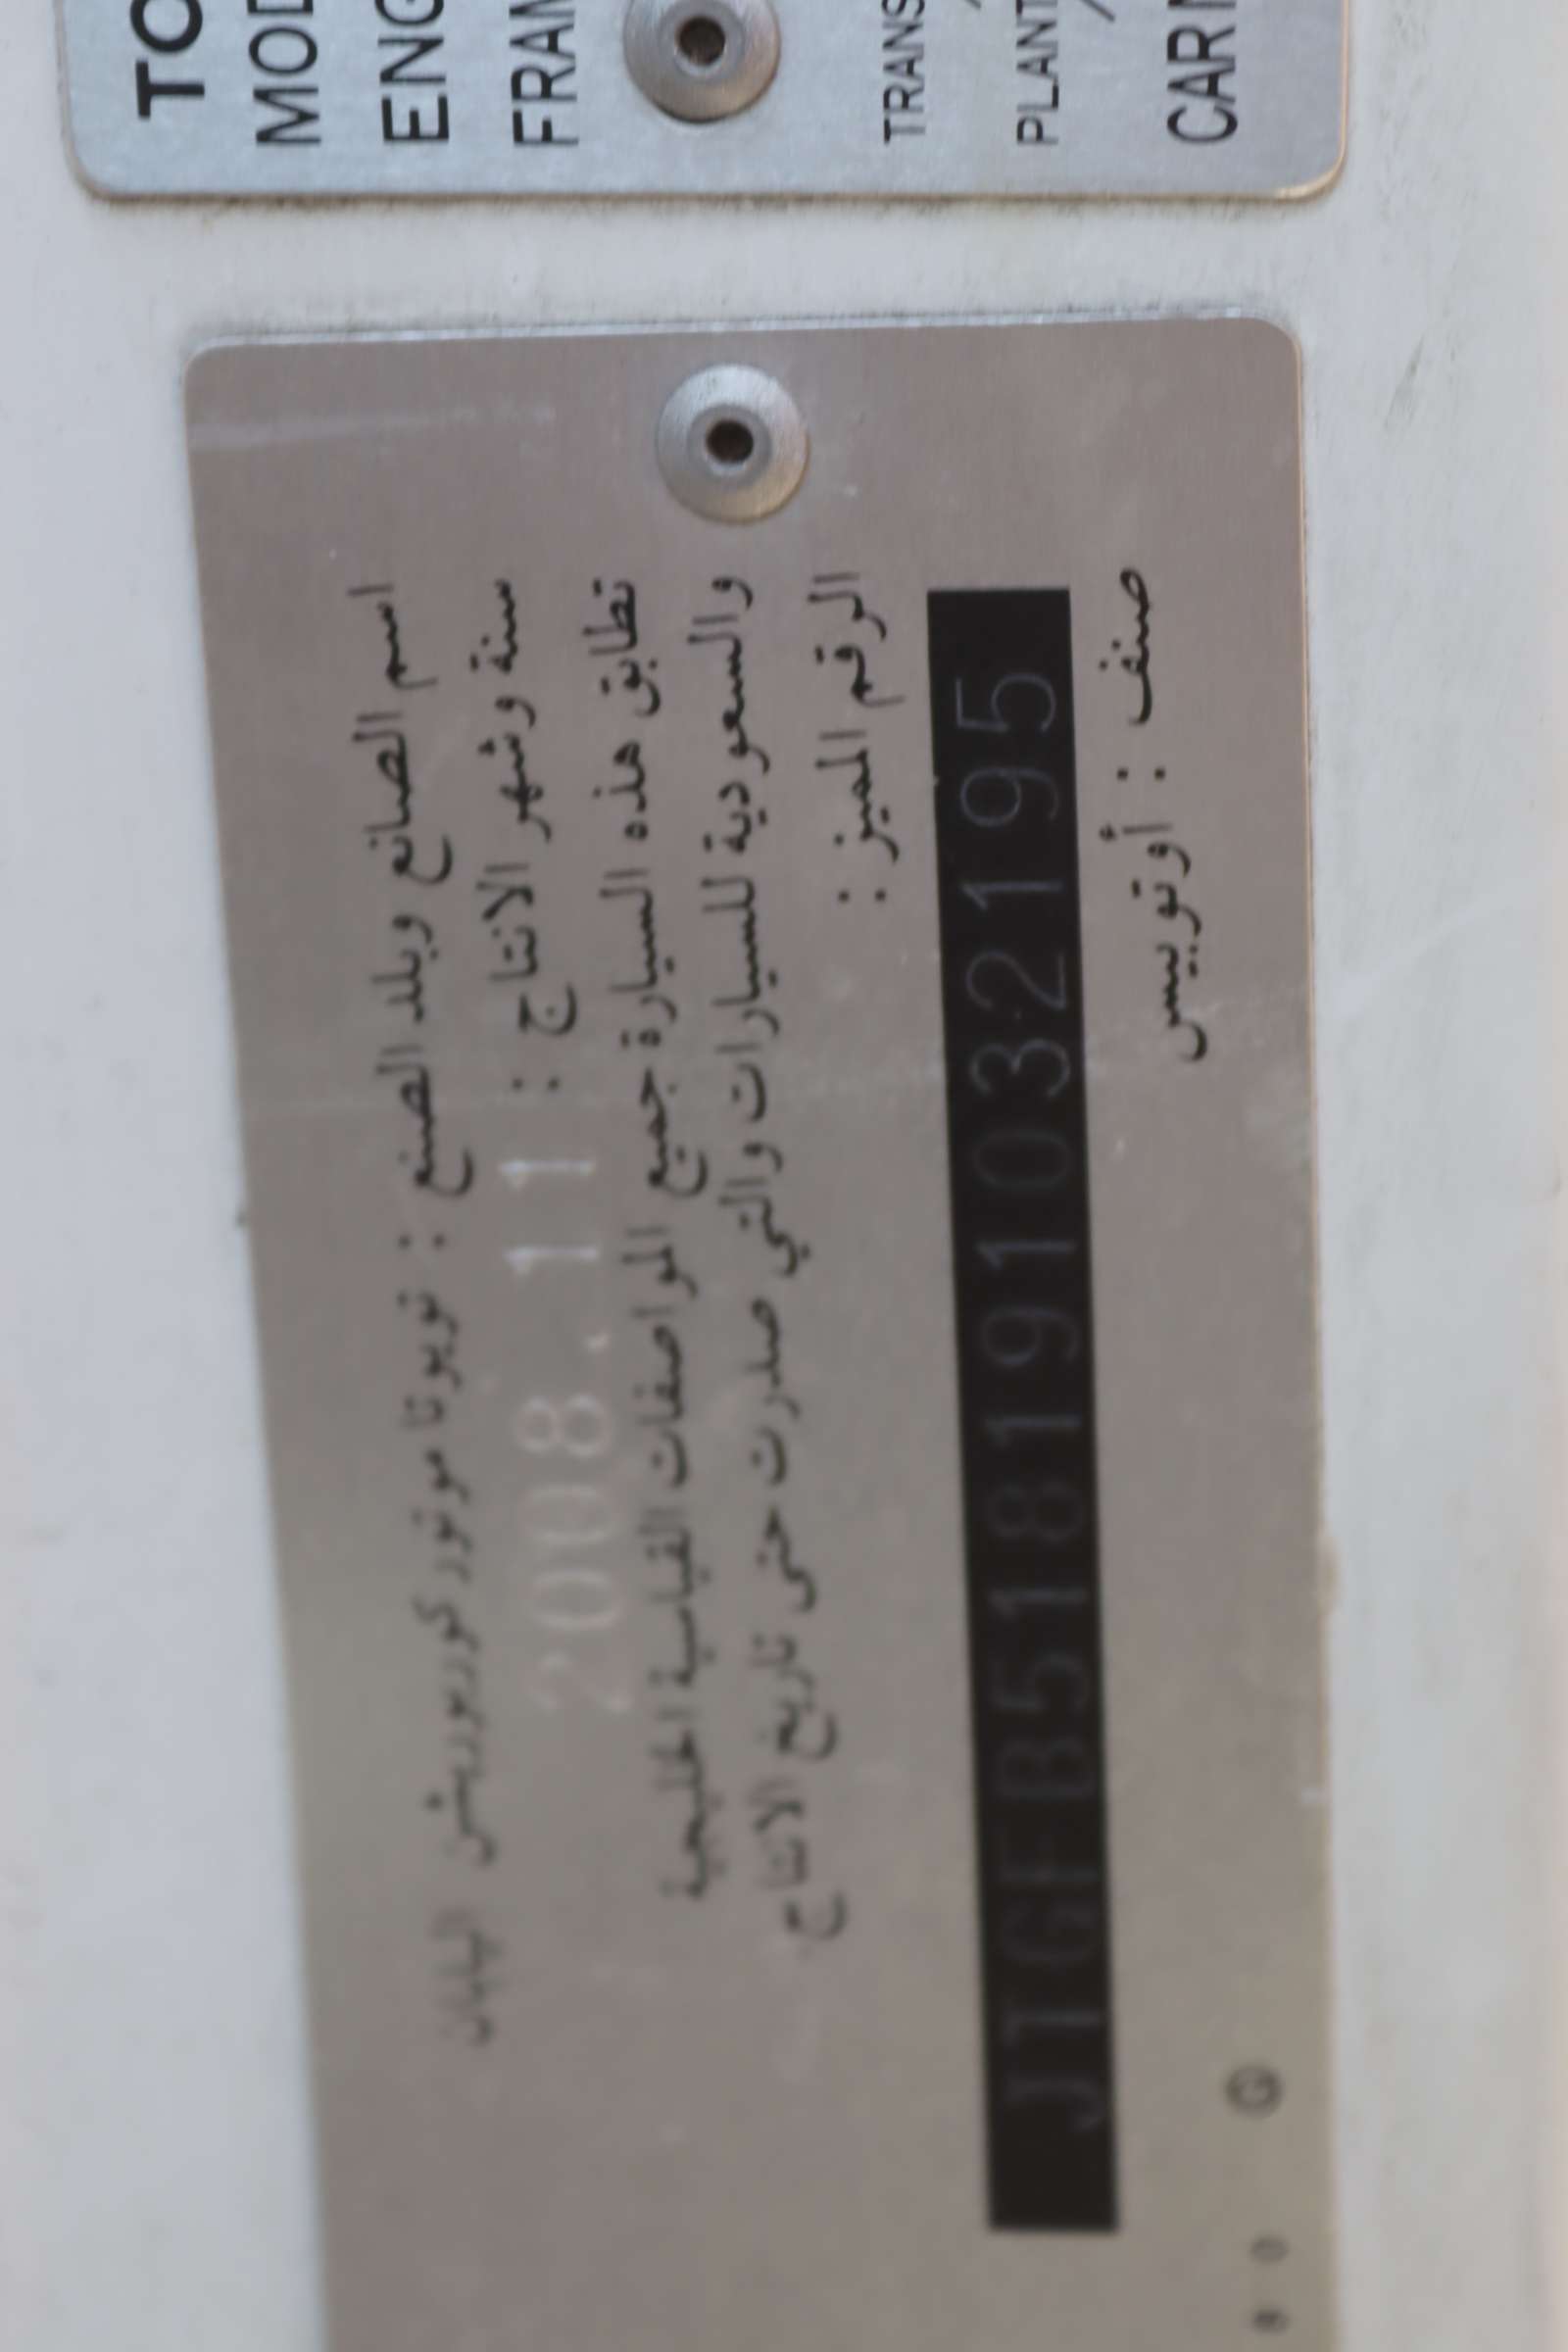 TO
MOD
ENG
FRAM
TRANS
PLANT
CAR N
اسم الصانع وبلد الصنع : تويوتا موتور كوربوريشن اليابان
سنة وشهر الانتاج : 2008.11
تطابق هذه السيارة جميع المواصفات القياسية الخليجية
والسعودية للسيارات والتي صدرت حتى تاريخ الانتاج
الرقم المميز :
JTGFB518191032195
صنف : أوتوبيس
G